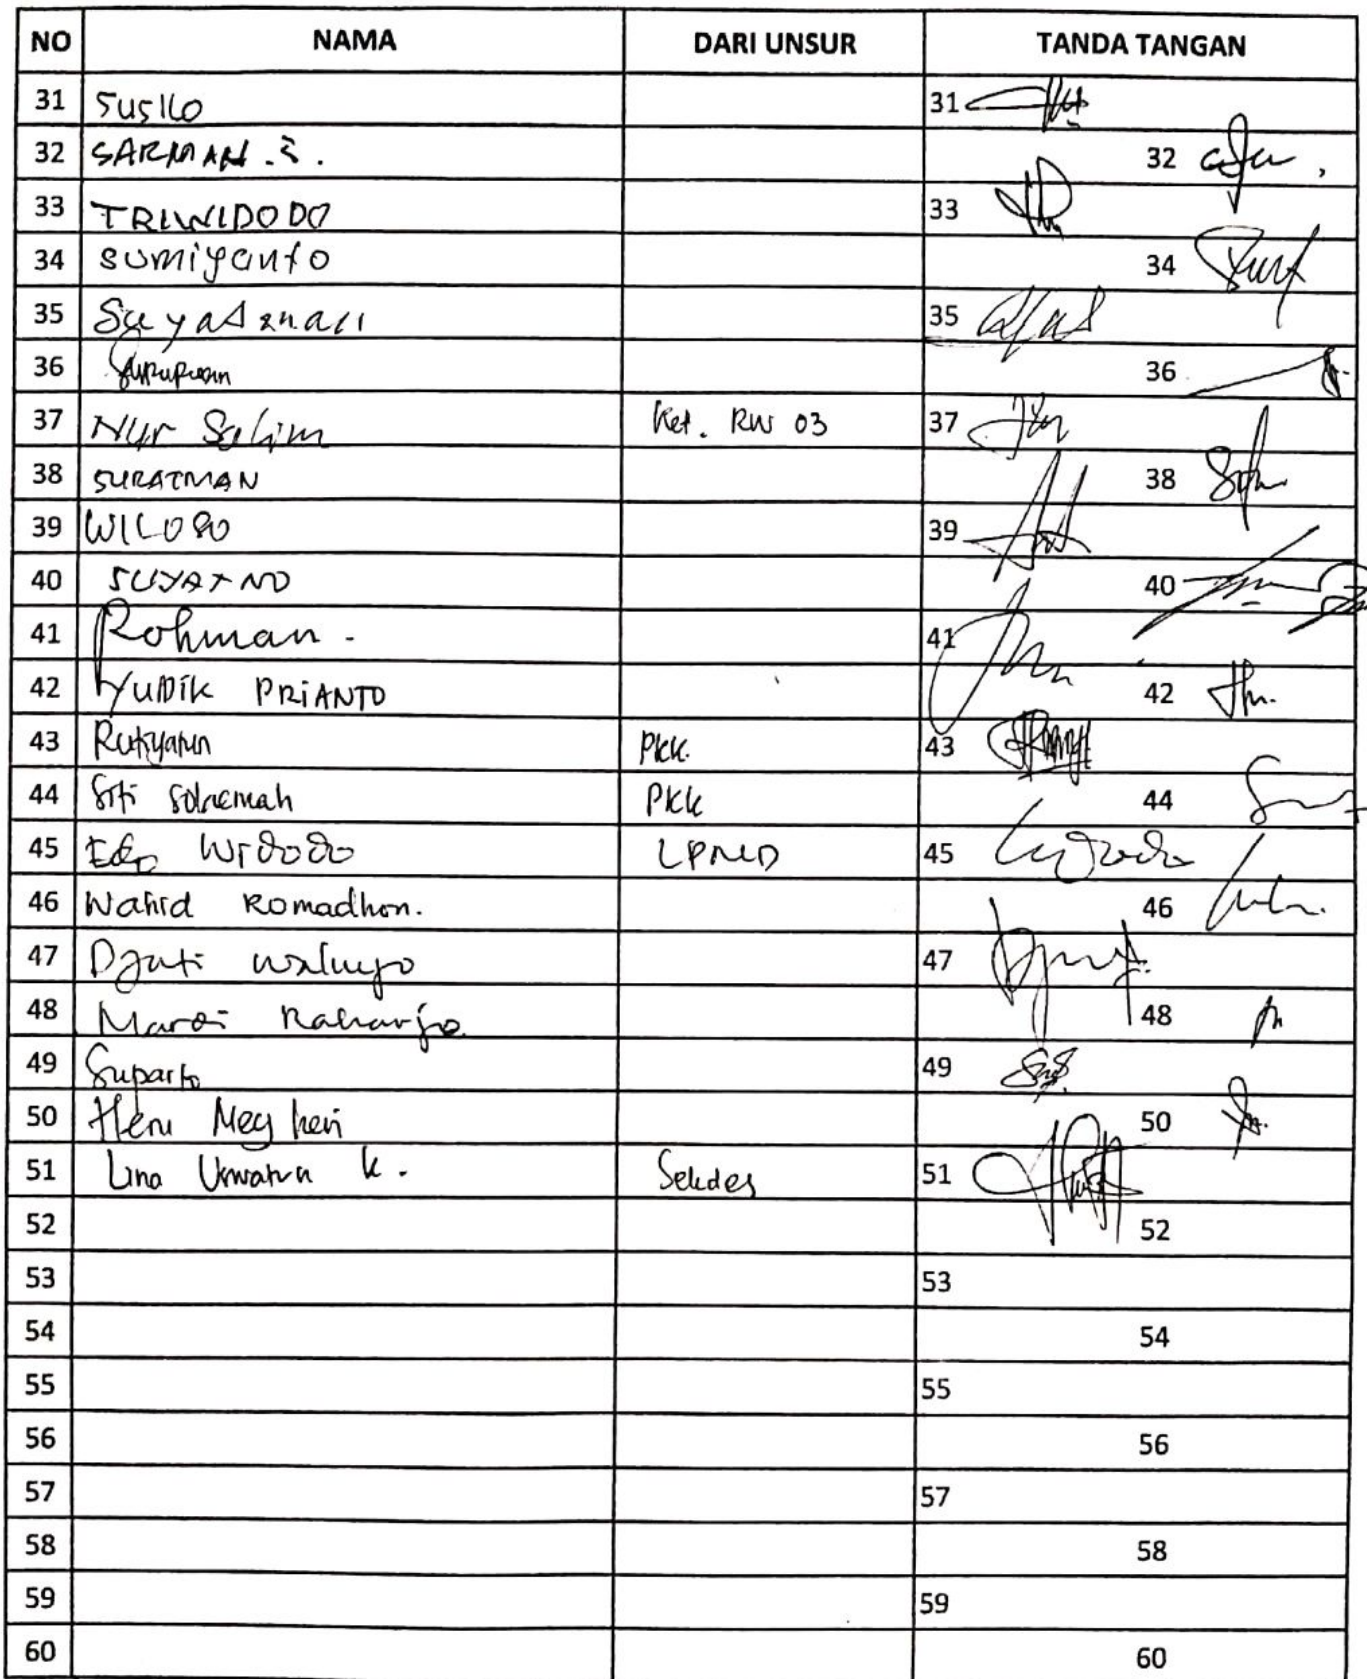 NO NAMA DARI UNSUR TANDA TANGAN
31 SUSILO 31
32 SARMAN .S. 32
33 TRIWIDODO 33
34 sumiyanto 34
35 35
36 36
37 Nur Salim Ket. RW 03 37
38 SURATMAN 38
39 39
40 SUYATNO 40
41 Rohman. 41
42 YUDIK PRIANTO 42
43 Rukyatun PKK. 43
44 Siti PKK 44
45 Edo Widodo LPMD 45
46 Wahid Romadhon. 46
47 Djati waluyo 47
48 Mardi Raharjo. 48
49 Suparto 49
50 Heru 50
51 Lina K. Sekdes 51
52 52
53 53
54 54
55 55
56 56
57 57
58 58
59 59
60 60